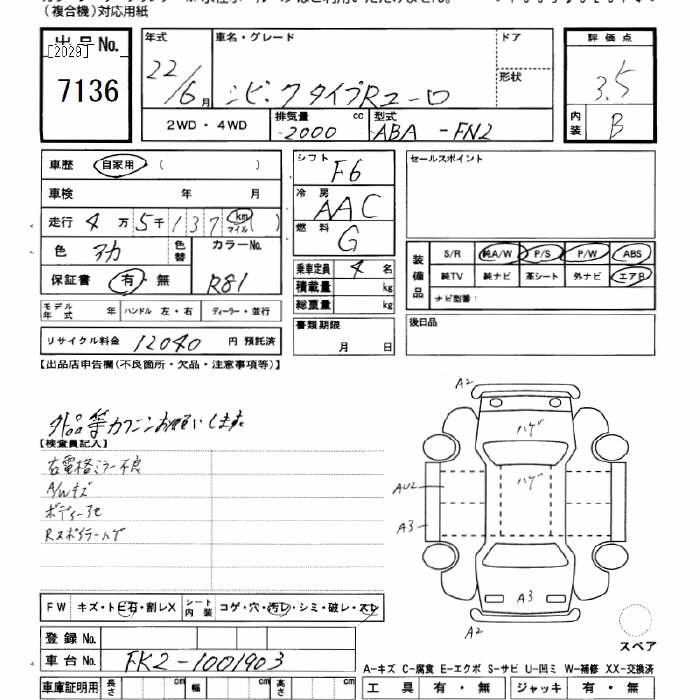 （複合機）対応用紙
出品No.
［2029］
7136
年式
22/6月
車名・グレード
シビックタイプRユーロ
ドア
形状
評価点
3.5
内装
B
2WD・4WD
排気量
2000
cc
型式
ABA-FN2
車歴
自家用
(
)
車検
年
月
走行
4万5千137
km
マイル
( )
色
アカ
色替
カラーNo.
R81
保証書
有・無
シフト
F6
冷房
AAC
燃料
G
乗車定員
4名
積載量
kg
総重量
kg
書類期限
月
日
セールスポイント
装備品
S/R
純A/W
P/S
P/W
ABS
純TV
純ナビ
革シート
外ナビ
エアB
ナビ型番：
後日品
モデル年式
年
ハンドル 左・右
ディーラー・並行
リサイクル料金
12040
円 預託済
【出品店申告欄(不良箇所・欠品・注意事項等)】
外品等カクニンお願いします。
【検査員記入】
右電格ミラー不良
A/Wキズ
ボディー
Rスポイラーハゲ
A2
ハゲ
ハゲ
AU2
A3
A3
A2
スペア
FW
キズ・トビ石・割レX
シート内装
コゲ・穴・汚レ・シミ・破レ・スレ
登録No.
車台No.
FK2-1001903
A-キズ C-腐食 E-エクボ S-サビ U-凹ミ W-補修 XX-交換済
車庫証明用
長さ
cm
幅
cm
高さ
cm
工具
有・無
ジャッキ
有・無